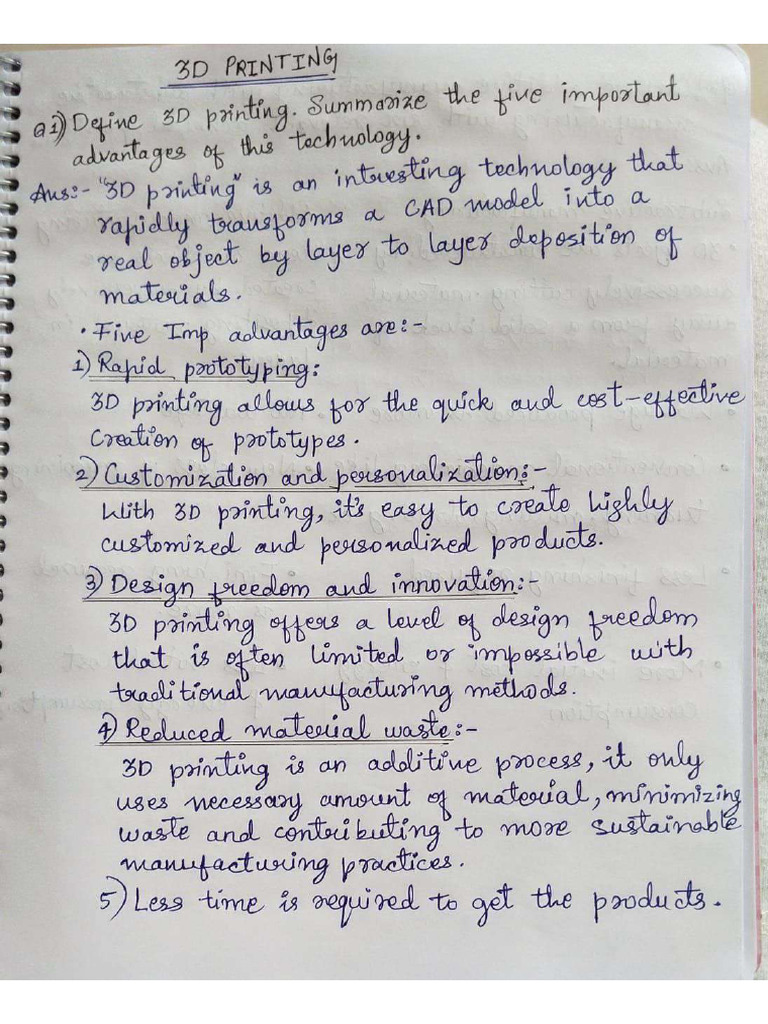 3D PRINTING
Q1) Define 3D printing. Summarize the five important
advantages of this technology.
Ans:- "3D printing" is an interesting technology that
rapidly transforms a CAD model into a
real object by layer to layer deposition of
materials.
• Five Imp advantages are:-
1) Rapid prototyping:
3D printing allows for the quick and cost-effective
creation of prototypes.
2) Customization and personalization:-
With 3D printing, it's easy to create highly
customized and personalized products.
3) Design freedom and innovation:-
3D printing offers a level of design freedom
that is often limited or impossible with
traditional manufacturing methods.
4) Reduced material waste:-
3D printing is an additive process, it only
uses necessary amount of material, minimizing
waste and contributing to more sustainable
manufacturing practices.
5) Less time is required to get the products.